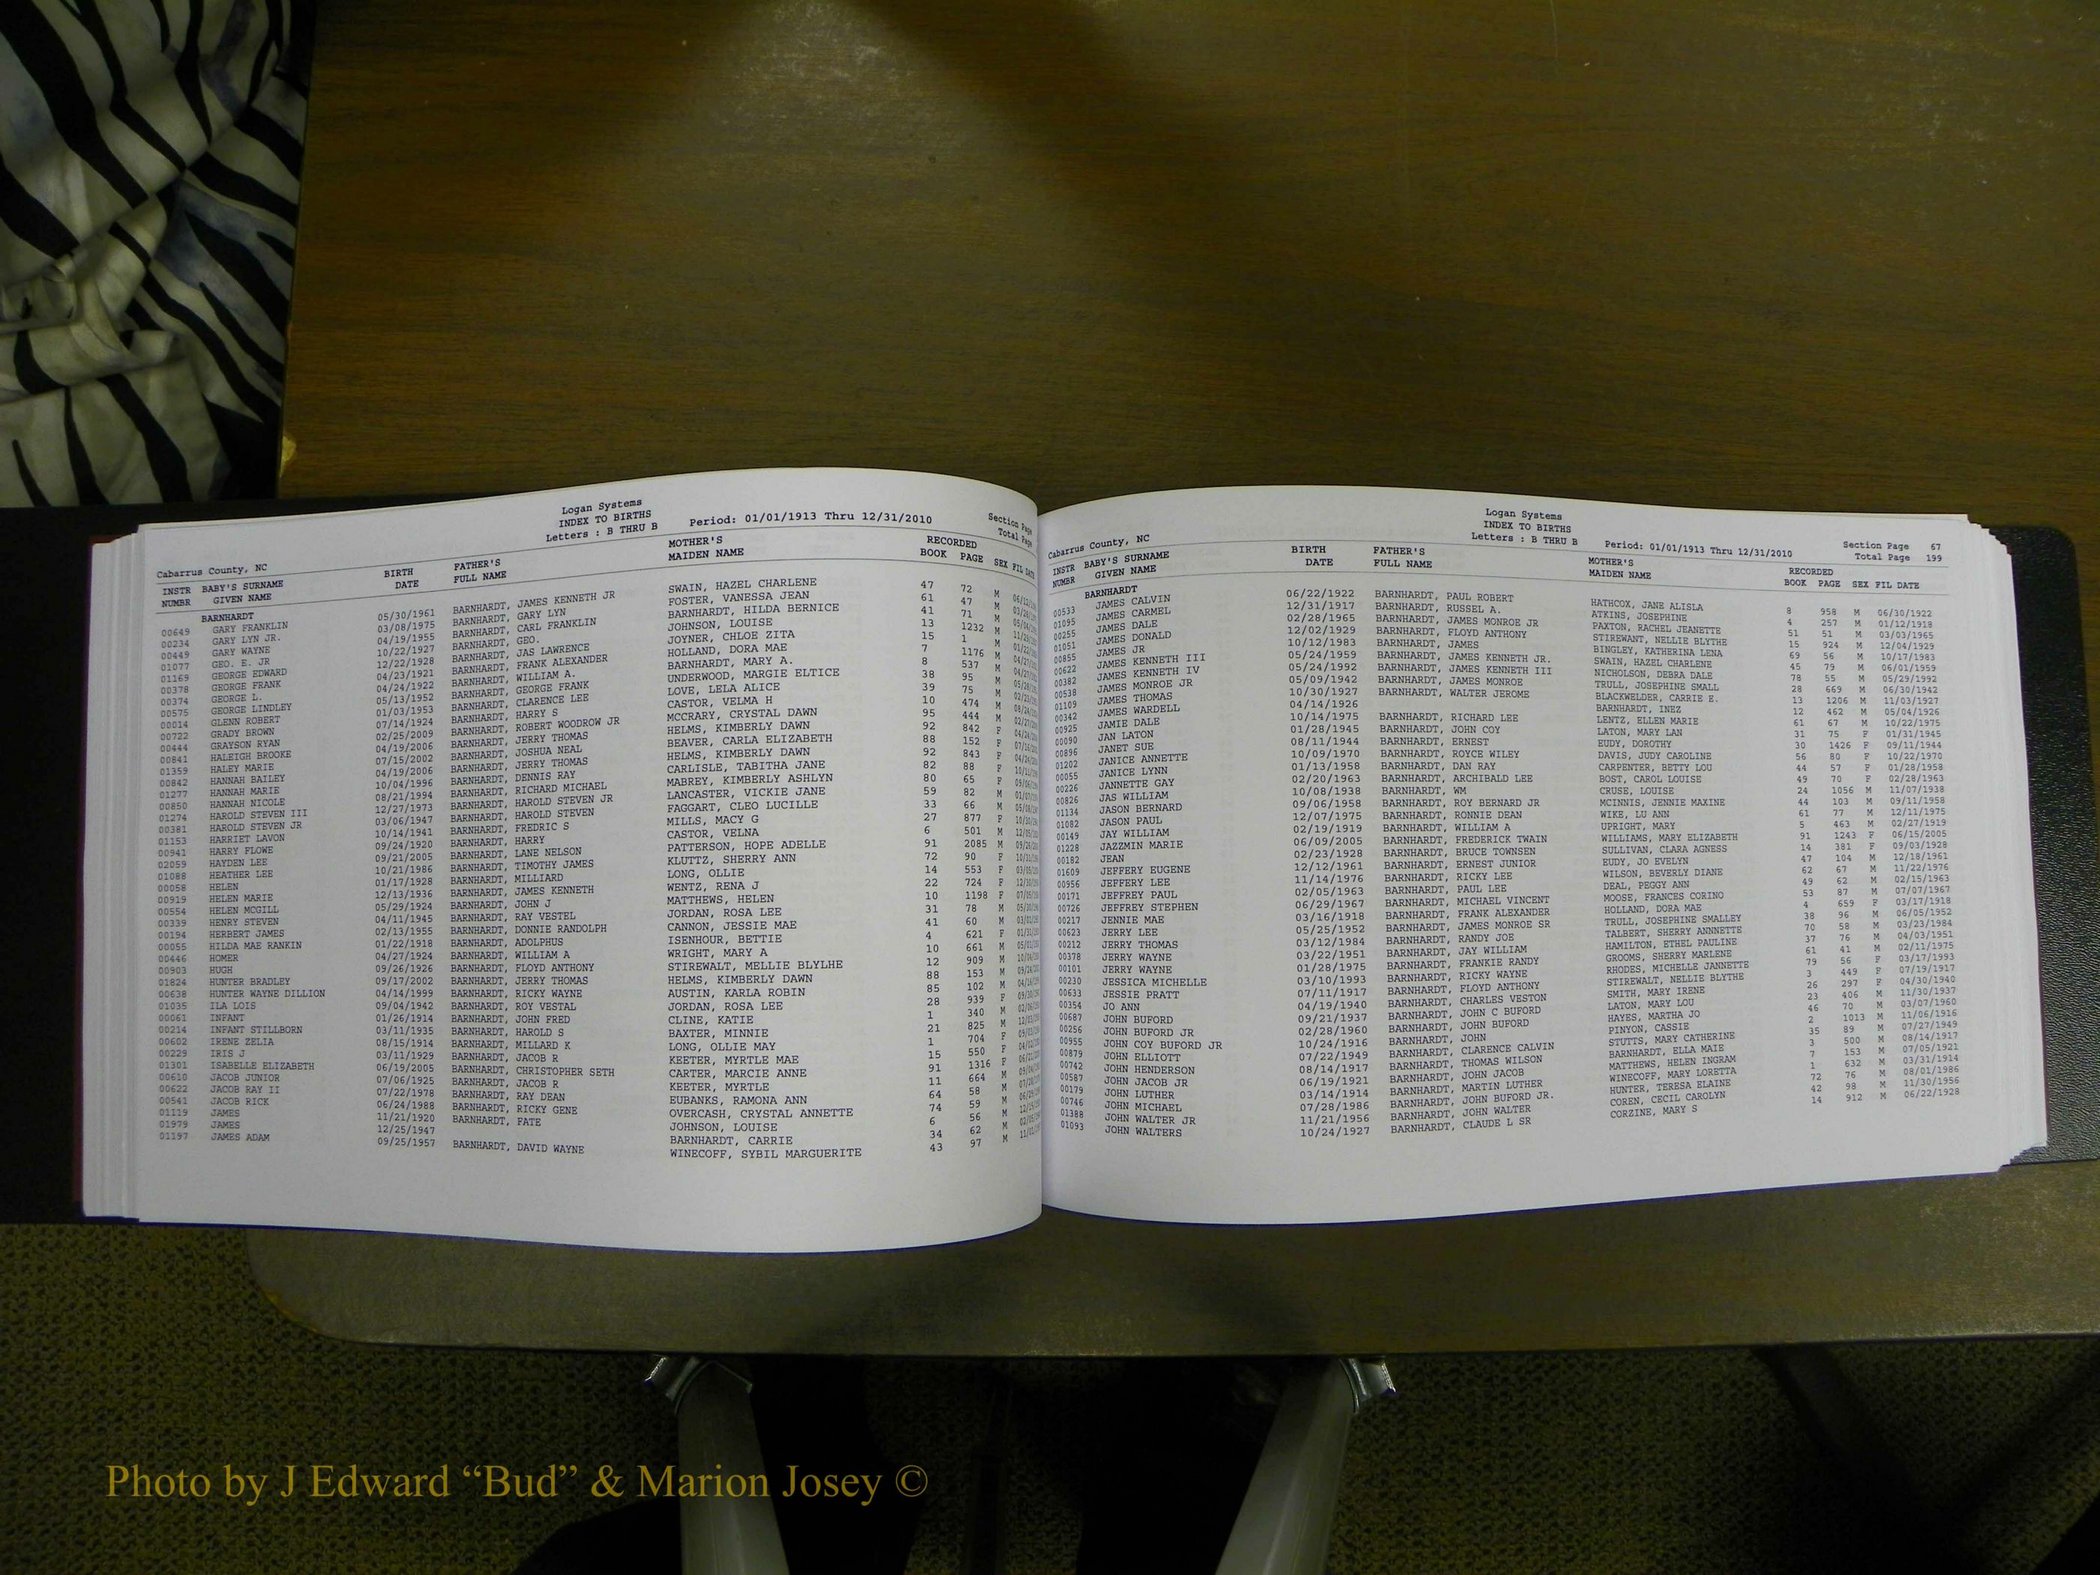 Logan Systems
INDEX TO BIRTHS
Letters : B THRU B Period: 01/01/1913 Thru 12/31/2010
Section Page
Total Page
Cabarrus County, NC
INSTR BABY'S SURNAME BIRTH FATHER'S MOTHER'S RECORDED
NUMBR GIVEN NAME DATE FULL NAME MAIDEN NAME BOOK PAGE SEX FIL DATE
BARNHARDT
00649 GARY FRANKLIN 05/30/1961 BARNHARDT, JAMES KENNETH JR SWAIN, HAZEL CHARLENE 47 72 M
00234 GARY LYN JR. 03/08/1975 BARNHARDT, GARY LYN FOSTER, VANESSA JEAN 61 47 M
00449 GARY WAYNE 04/19/1955 BARNHARDT, CARL FRANKLIN BARNHARDT, HILDA BERNICE 41 71 M
01077 GEO. E. JR 10/22/1927 BARNHARDT, GEO. JOHNSON, LOUISE 13 1232 M
01169 GEORGE EDWARD 12/22/1928 BARNHARDT, JAS LAWRENCE JOYNER, CHLOE ZITA 15 1 M
00378 GEORGE FRANK 04/23/1921 BARNHARDT, FRANK ALEXANDER HOLLAND, DORA MAE 7 1176 M
00374 GEORGE L. 04/24/1922 BARNHARDT, WILLIAM A. BARNHARDT, MARY A. 8 537 M
00575 GEORGE LINDLEY 05/13/1952 BARNHARDT, GEORGE FRANK UNDERWOOD, MARGIE ELTICE 38 95 M
00014 GLENN ROBERT 01/03/1953 BARNHARDT, CLARENCE LEE LOVE, LELA ALICE 39 75 M
00722 GRADY BROWN 07/14/1924 BARNHARDT, HARRY S CASTOR, VELMA H 10 474 M
00444 GRAYSON RYAN 02/25/2009 BARNHARDT, ROBERT WOODROW JR MCCRARY, CRYSTAL DAWN 95 444 M
00841 HALEIGH BROOKE 04/19/2006 BARNHARDT, JERRY THOMAS HELMS, KIMBERLY DAWN 92 842 F
01359 HALEY MARIE 07/15/2002 BARNHARDT, JOSHUA NEAL BEAVER, CARLA ELIZABETH 88 152 F
00842 HANNAH BAILEY 04/19/2006 BARNHARDT, JERRY THOMAS HELMS, KIMBERLY DAWN 92 843 F
01277 HANNAH MARIE 10/04/1996 BARNHARDT, DENNIS RAY CARLISLE, TABITHA JANE 82 88 F
00850 HANNAH NICOLE 08/21/1994 BARNHARDT, RICHARD MICHAEL MABREY, KIMBERLY ASHLYN 80 65 F
01274 HAROLD STEVEN III 12/27/1973 BARNHARDT, HAROLD STEVEN JR LANCASTER, VICKIE JANE 59 82 M
00381 HAROLD STEVEN JR 03/06/1947 BARNHARDT, HAROLD STEVEN FAGGART, CLEO LUCILLE 33 66 M
01153 HARRIET LAVON 10/14/1941 BARNHARDT, FREDRIC S MILLS, MACY G 27 877 F
00941 HARRY FLOWE 09/24/1920 BARNHARDT, HARRY CASTOR, VELNA 6 501 M
02059 HAYDEN LEE 09/21/2005 BARNHARDT, LANE NELSON PATTERSON, HOPE ADELLE 91 2085 M
01088 HEATHER LEE 10/21/1986 BARNHARDT, TIMOTHY JAMES KLUTTZ, SHERRY ANN 72 90 F
00058 HELEN 01/17/1928 BARNHARDT, MILLIARD LONG, OLLIE 14 553 F
00919 HELEN MARIE 12/13/1936 BARNHARDT, JAMES KENNETH WENTZ, RENA J 22 724 F
00554 HELEN MCGILL 05/29/1924 BARNHARDT, JOHN J MATTHEWS, HELEN 10 1198 F
00339 HENRY STEVEN 04/11/1945 BARNHARDT, RAY VESTEL JORDAN, ROSA LEE 31 78 M
00194 HERBERT JAMES 02/13/1955 BARNHARDT, DONNIE RANDOLPH CANNON, JESSIE MAE 41 60 M
00055 HILDA MAE RANKIN 01/22/1918 BARNHARDT, ADOLPHUS ISENHOUR, BETTIE 4 621 F
00446 HOMER 04/27/1924 BARNHARDT, WILLIAM A WRIGHT, MARY A 10 661 M
00903 HUGH 09/26/1926 BARNHARDT, FLOYD ANTHONY STIREWALT, MELLIE BLYLHE 12 909 M
01824 HUNTER BRADLEY 09/17/2002 BARNHARDT, JERRY THOMAS HELMS, KIMBERLY DAWN 88 153 M
00638 HUNTER WAYNE DILLION 04/14/1999 BARNHARDT, RICKY WAYNE AUSTIN, KARLA ROBIN 85 102 M
01035 ILA LOIS 09/04/1942 BARNHARDT, ROY VESTAL JORDAN, ROSA LEE 28 939 F
00061 INFANT 01/26/1914 BARNHARDT, JOHN FRED CLINE, KATIE 1 340 M
00214 INFANT STILLBORN 03/11/1935 BARNHARDT, HAROLD S BAXTER, MINNIE 21 825 M
00602 IRENE ZELIA 08/15/1914 BARNHARDT, MILLARD K LONG, OLLIE MAY 1 704 F
00229 IRIS J 03/11/1929 BARNHARDT, JACOB R KEETER, MYRTLE MAE 15 550 F
01301 ISABELLE ELIZABETH 06/19/2005 BARNHARDT, CHRISTOPHER SETH CARTER, MARCIE ANNE 91 1316 F
00610 JACOB JUNIOR 07/06/1925 BARNHARDT, JACOB R KEETER, MYRTLE 11 664 M
00622 JACOB RAY II 07/22/1978 BARNHARDT, RAY DEAN EUBANKS, RAMONA ANN 64 58 M
00541 JACOB RICK 06/24/1988 BARNHARDT, RICKY GENE OVERCASH, CRYSTAL ANNETTE 74 59 M
01119 JAMES 11/21/1920 BARNHARDT, FATE JOHNSON, LOUISE 6 56 M
01979 JAMES 12/25/1947 BARNHARDT, CARRIE 34 62 M
01197 JAMES ADAM 09/25/1957 BARNHARDT, DAVID WAYNE WINECOFF, SYBIL MARGUERITE 43 97 M
Logan Systems
INDEX TO BIRTHS
Letters : B THRU B Period: 01/01/1913 Thru 12/31/2010
Section Page 67
Total Page 199
Cabarrus County, NC
INSTR BABY'S SURNAME BIRTH FATHER'S MOTHER'S RECORDED
NUMBR GIVEN NAME DATE FULL NAME MAIDEN NAME BOOK PAGE SEX FIL DATE
BARNHARDT
00533 JAMES CALVIN 06/22/1922 BARNHARDT, PAUL ROBERT HATHCOX, JANE ALISLA 8 958 M 06/30/1922
01095 JAMES CARMEL 12/31/1917 BARNHARDT, RUSSEL A. ATKINS, JOSEPHINE 4 257 M 01/12/1918
00255 JAMES DALE 02/28/1965 BARNHARDT, JAMES MONROE JR PAXTON, RACHEL JEANETTE 51 51 M 03/03/1965
01051 JAMES DONALD 12/02/1929 BARNHARDT, FLOYD ANTHONY STIREWANT, NELLIE BLYTHE 15 924 M 12/04/1929
00855 JAMES JR 10/12/1983 BARNHARDT, JAMES BINGLEY, KATHERINA LENA 69 56 M 10/17/1983
00622 JAMES KENNETH III 05/24/1959 BARNHARDT, JAMES KENNETH JR. SWAIN, HAZEL CHARLENE 45 79 M 06/01/1959
00382 JAMES KENNETH IV 05/24/1992 BARNHARDT, JAMES KENNETH III NICHOLSON, DEBRA DALE 78 55 M 05/29/1992
00538 JAMES MONROE JR 05/09/1942 BARNHARDT, JAMES MONROE TRULL, JOSEPHINE SMALL 28 669 M 06/30/1942
01109 JAMES THOMAS 10/30/1927 BARNHARDT, WALTER JEROME BLACKWELDER, CARRIE E. 13 1206 M 11/03/1927
00342 JAMES WARDELL 04/14/1926 BARNHARDT, INEZ 12 462 M 05/04/1926
00925 JAMIE DALE 10/14/1975 BARNHARDT, RICHARD LEE LENTZ, ELLEN MARIE 61 67 M 10/22/1975
00090 JAN LATON 01/28/1945 BARNHARDT, JOHN COY LATON, MARY LAN 31 75 F 01/31/1945
00896 JANET SUE 08/11/1944 BARNHARDT, ERNEST EUDY, DOROTHY 30 1426 F 09/11/1944
01202 JANICE ANNETTE 10/09/1970 BARNHARDT, ROYCE WILEY DAVIS, JUDY CAROLINE 56 80 F 10/22/1970
00055 JANICE LYNN 01/13/1958 BARNHARDT, DAN RAY CARPENTER, BETTY LOU 44 57 F 01/28/1958
00226 JANNETTE GAY 02/20/1963 BARNHARDT, ARCHIBALD LEE BOST, CAROL LOUISE 49 70 F 02/28/1963
00826 JAS WILLIAM 10/08/1938 BARNHARDT, WM CRUSE, LOUISE 24 1056 M 11/07/1938
01134 JASON BERNARD 09/06/1958 BARNHARDT, ROY BERNARD JR MCINNIS, JENNIE MAXINE 44 103 M 09/11/1958
01082 JASON PAUL 12/07/1975 BARNHARDT, RONNIE DEAN WIKE, LU ANN 61 77 M 12/11/1975
00149 JAY WILLIAM 02/19/1919 BARNHARDT, WILLIAM A UPRIGHT, MARY 5 463 M 02/27/1919
01228 JAZZMIN MARIE 06/09/2005 BARNHARDT, FREDERICK TWAIN WILLIAMS, MARY ELIZABETH 91 1243 F 06/15/2005
00182 JEAN 02/23/1928 BARNHARDT, BRUCE TOWNSEN SULLIVAN, CLARA AGNESS 14 381 F 09/03/1928
01609 JEFFERY EUGENE 12/12/1961 BARNHARDT, ERNEST JUNIOR EUDY, JO EVELYN 47 104 M 12/18/1961
00956 JEFFERY LEE 11/14/1976 BARNHARDT, RICKY LEE WILSON, BEVERLY DIANE 62 67 M 11/22/1976
00171 JEFFREY PAUL 02/05/1963 BARNHARDT, PAUL LEE DEAL, PEGGY ANN 49 62 M 02/15/1963
00726 JEFFREY STEPHEN 06/29/1967 BARNHARDT, MICHAEL VINCENT MOOSE, FRANCES CORINO 53 87 M 07/07/1967
00217 JENNIE MAE 03/16/1918 BARNHARDT, FRANK ALEXANDER HOLLAND, DORA MAE 4 659 F 03/17/1918
00623 JERRY LEE 05/25/1952 BARNHARDT, JAMES MONROE SR TRULL, JOSEPHINE SMALLEY 38 96 M 06/05/1952
00212 JERRY THOMAS 03/12/1984 BARNHARDT, RANDY JOE TALBERT, SHERRY ANNNETTE 70 58 M 03/23/1984
00378 JERRY WAYNE 03/22/1951 BARNHARDT, JAY WILLIAM HAMILTON, ETHEL PAULINE 37 76 M 04/03/1951
00101 JERRY WAYNE 01/28/1975 BARNHARDT, FRANKIE RANDY GROOMS, SHERRY MARLENE 61 41 M 02/11/1975
00230 JESSICA MICHELLE 03/10/1993 BARNHARDT, RICKY WAYNE RHODES, MICHELLE JANNETTE 79 56 F 03/17/1993
00633 JESSIE PRATT 07/11/1917 BARNHARDT, FLOYD ANTHONY STIREWALT, NELLIE BLYTHE 3 449 F 07/19/1917
00354 JO ANN 04/19/1940 BARNHARDT, CHARLES VESTON SMITH, MARY IRENE 26 297 F 04/30/1940
00687 JOHN BUFORD 09/21/1937 BARNHARDT, JOHN C BUFORD LATON, MARY LOU 23 406 M 11/30/1937
00256 JOHN BUFORD JR 02/28/1960 BARNHARDT, JOHN BUFORD HAYES, MARTHA JO 46 70 M 03/07/1960
00955 JOHN COY BUFORD JR 10/24/1916 BARNHARDT, JOHN PINYON, CASSIE 2 1013 M 11/06/1916
00879 JOHN ELLIOTT 07/22/1949 BARNHARDT, CLARENCE CALVIN STUTTS, MARY CATHERINE 35 89 M 07/27/1949
00742 JOHN HENDERSON 08/14/1917 BARNHARDT, THOMAS WILSON BARNHARDT, ELLA MAIE 3 500 M 08/14/1917
00587 JOHN JACOB JR 06/19/1921 BARNHARDT, JOHN JACOB MATTHEWS, HELEN INGRAM 7 153 M 07/05/1921
00179 JOHN LUTHER 03/14/1914 BARNHARDT, MARTIN LUTHER WINECOFF, MARY LORETTA 1 632 M 03/31/1914
00746 JOHN MICHAEL 07/28/1986 BARNHARDT, JOHN BUFORD JR. HUNTER, TERESA ELAINE 72 76 M 08/01/1986
01388 JOHN WALTER JR 11/21/1956 BARNHARDT, JOHN WALTER COREN, CECIL CAROLYN 42 98 M 11/30/1956
01093 JOHN WALTERS 10/24/1927 BARNHARDT, CLAUDE L SR CORZINE, MARY S 14 912 M 06/22/1928
Photo by J Edward “Bud” & Marion Josey ©